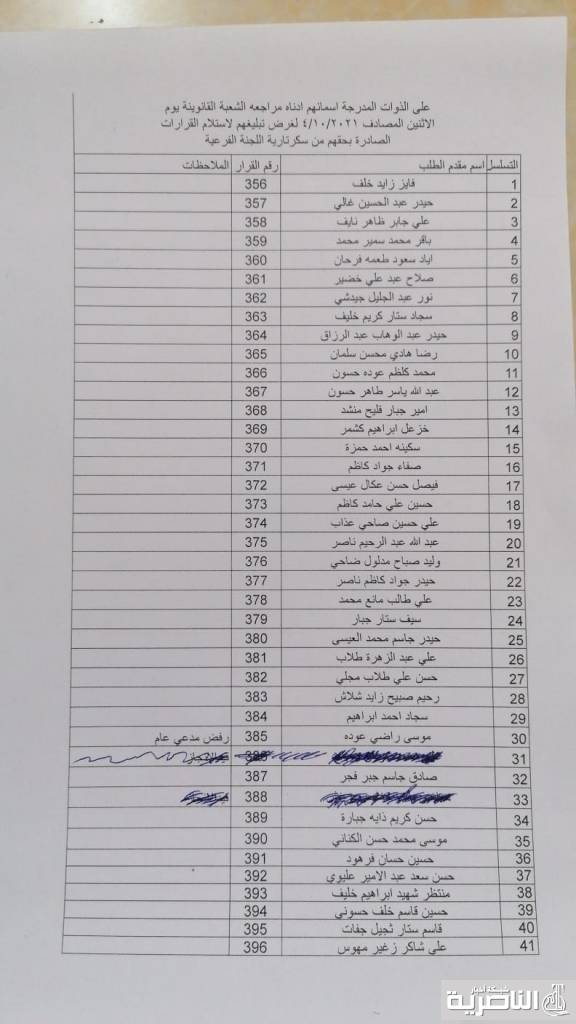 على الذوات المدرجة اسمائهم ادناه مراجعه الشعبة القانوينة يوم
الاثنين المصادف ٤/١٠/٢٠٢١ لغرض تبليغهم لاستلام القرارات
الصادرة بحقهم من سكرتارية اللجنة الفرعية
التسلسل اسم مقدم الطلب رقم القرار الملاحظات
1 فايز زايد خلف 356
2 حيدر عبد الحسين غالي 357
3 علي جابر ظاهر نايف 358
4 باقر محمد سمير محمد 359
5 اياد سعود طعمه فرحان 360
6 صلاح عبد علي خضير 361
7 نور عبد الجليل جيدشي 362
8 سجاد ستار كريم خليف 363
9 حيدر عبد الوهاب عبد الرزاق 364
10 رضا هادي محسن سلمان 365
11 محمد كلظم عوده حسون 366
12 عبد الله ياسر طاهر حسون 367
13 امير جبار فليح منشد 368
14 خزعل ابراهيم كشمر 369
15 سكينه احمد حمزة 370
16 صفاء جواد كاظم 371
17 فيصل حسن عكال عيسى 372
18 حسين علي حامد كاظم 373
19 علي حسين صاحي عذاب 374
20 عبد الله عبد الرحيم ناصر 375
21 وليد صباح مدلول ضاحي 376
22 حيدر جواد كاظم ناصر 377
23 علي طالب مانع محمد 378
24 سيف ستار جبار 379
25 حيدر جاسم محمد العيسى 380
26 علي عبد الزهرة طلاب 381
27 حسن علي طلاب مجلي 382
28 رحيم صبيح زايد شلاش 383
29 سجاد احمد ابراهيم 384
30 موسى راضي عوده 385 رفض مدعي عام
31
32 صادق جاسم جبر فجر 387
33 388
34 حسن كريم ذايه جبارة 389
35 موسى محمد حسن الكناني 390
36 حسين حسان فرهود 391
37 حسن سعد عبد الامير عليوي 392
38 منتظر شهيد ابراهيم خليف 393
39 حسين قاسم خلف حسوني 394
40 قاسم ستار ثجيل جفات 395
41 علي شاكر زغير مهوس 396
شبكة أخبار
الناصرية